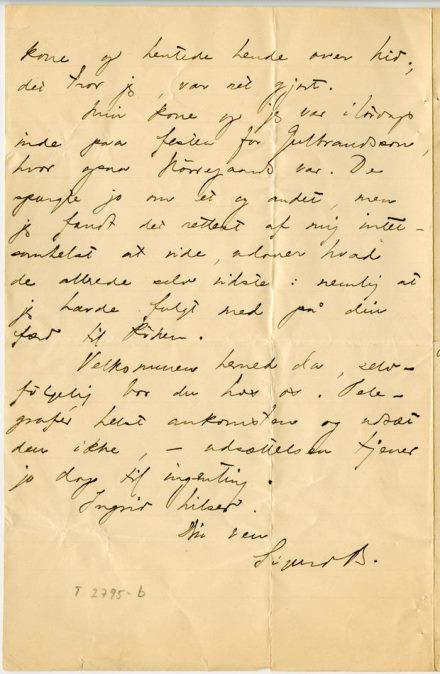 kone og hentede hende over hid;
det tror jeg var ret gjort.
Min kone og jeg var i lørdags
inde paa festen for Gulbrandson,
hvor ogsaa Nørregaards var. De
spurgte jo om et og andet, men
jeg fandt det rettest af mig intet-
somhelst at vide, udover hvad
de allrede selv vidste: nemlig at
jeg havde fulgt med på din
færd til
Velkommen herned da, selv-
følgelig bor du hos os. Tele-
grafér helst ankomsten og udsæt
den ikke, – udsættelsen tjener
jo dog til ingenting.
Ingrid hilser.
Din ven
Sigurd B.
T 2795-b